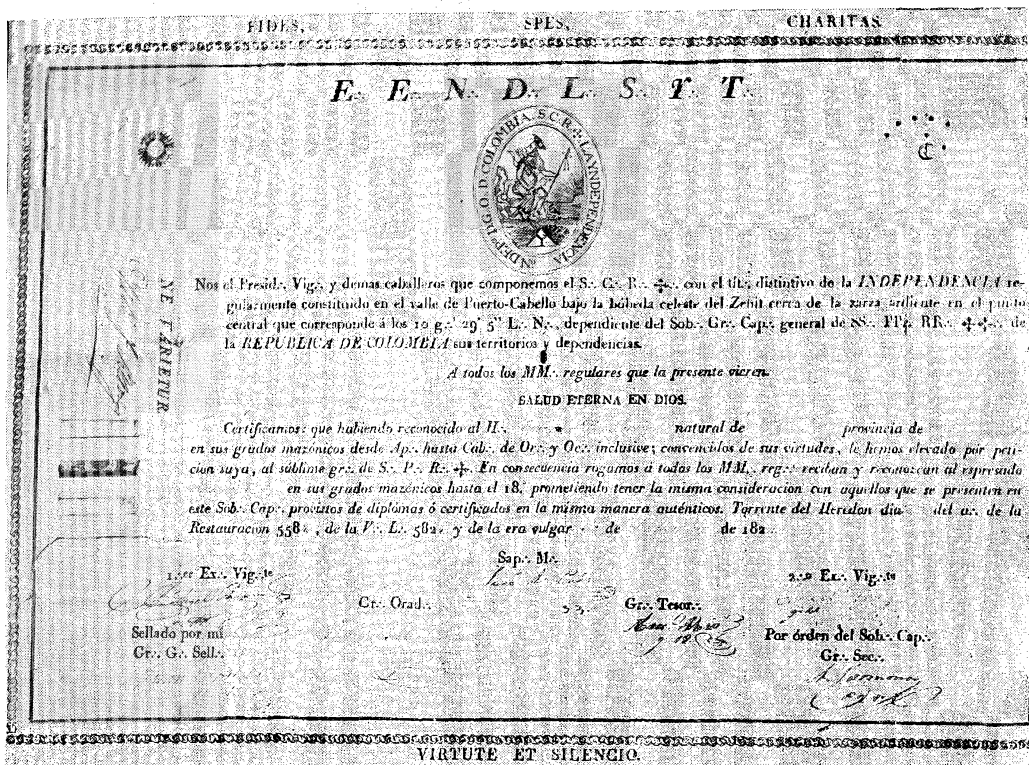 FIDES, SPES, CHARITAS.
E∴ E∴ N∴ D∴ L∴ S∴ Y∴ T∴
INDEPª. D. G. O. D. COLOMBIA S.C.R. ✢ LA YNDEPENDENCIA
NE VARIETUR
Nos el Presid∴ Vig∴ y demas caballeros que componemos el S∴ C∴ R∴ ✢∴ con el tít∴ distintivo de la INDEPENDENCIA re-
gularmente constituido en el valle de Puerto-Cabello bajo la bóbeda celeste del Zenit cerca de la zarza ardiente en el punto
central que corresponde á los 10 g∴ 29' 5" L∴ N∴, dependiente del Sob∴ Gr∴ Cap∴ general de SS∴ PP∴ RR∴ ✢✢∴ de
la REPUBLICA DE COLOMBIA sus territorios y dependencias.
A todos los MM∴ regulares que la presente vieren.
SALUD ETERNA EN DIOS.
Certificamos: que habiendo reconocido al H∴ natural de provincia de
en sus grados mazónicos desde Ap∴ hasta Cab∴ de Or∴ y Oc∴ inclusive; convencidos de sus virtudes, le hemos elevado por peti-
cion suya, al súblime gr∴ de S∴ P∴ R∴ ✢∴ En consecuencia rogamos á todos los MM∴ reg∴ reciban y reconozcan al espresado
en sus grados mazónicos hasta el 18.° prometiendo tener la misma consideracion con aquellos que se presenten en
este Sob∴ Cap∴ provistos de diplomas ó certificados en la misma manera auténticos. Torrente del Heredon dia del a∴ de la
Restauracion 558 , de la V∴ L∴ 582 y de la era vulgar de de 182
Sap∴ M∴
1.er Ex∴ Vig∴te 2.do Ex∴ Vig∴te
Cr∴ Orad∴ Gr∴ Tesor∴
Sellado por mi Por órden del Sob∴ Cap∴
Gr∴ G∴ Sell∴ Gr∴ Sec∴
VIRTUTE ET SILENCIO.